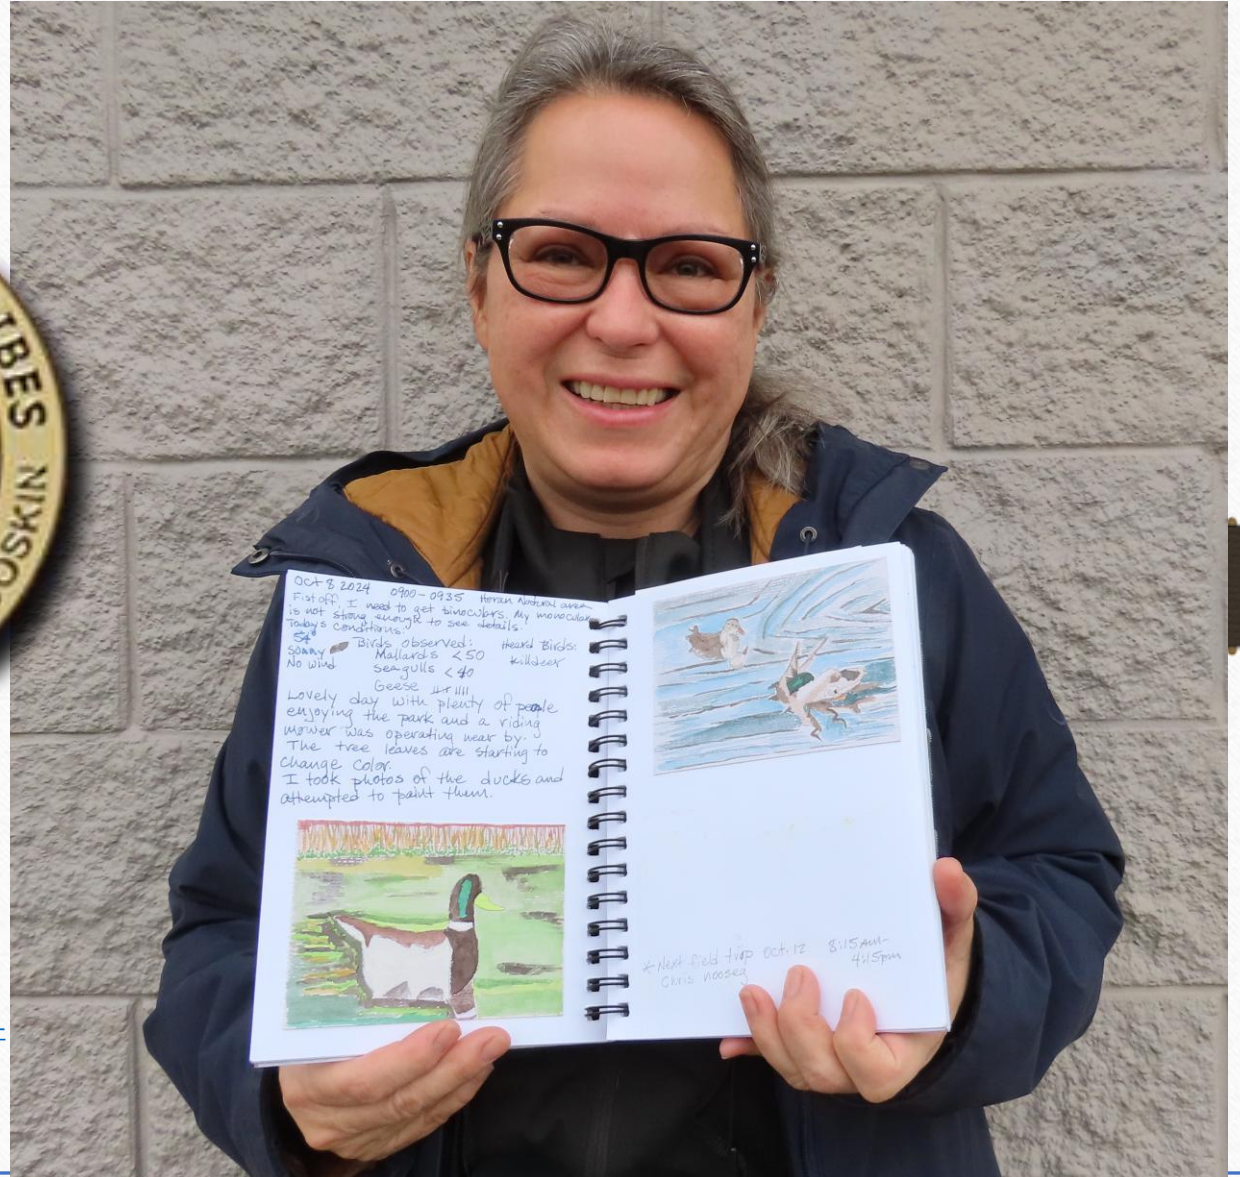 IBES
OSKIN
Oct 8 2024 0900-0935 Horan Natural area
Fist off, I need to get binoculars. My monocular
is not strong enough to see details.
Today's conditions:
54° Birds observed: Heard Birds:
Sunny Mallards <50 killdeer
No wind Seagulls <40
Geese
Lovely day with plenty of people
enjoying the park and a riding
mower was operating near by.
The tree leaves are starting to
change color.
I took photos of the ducks and
attempted to paint them.
Next field trip Oct. 12 8:15am-
4:15pm
Chris